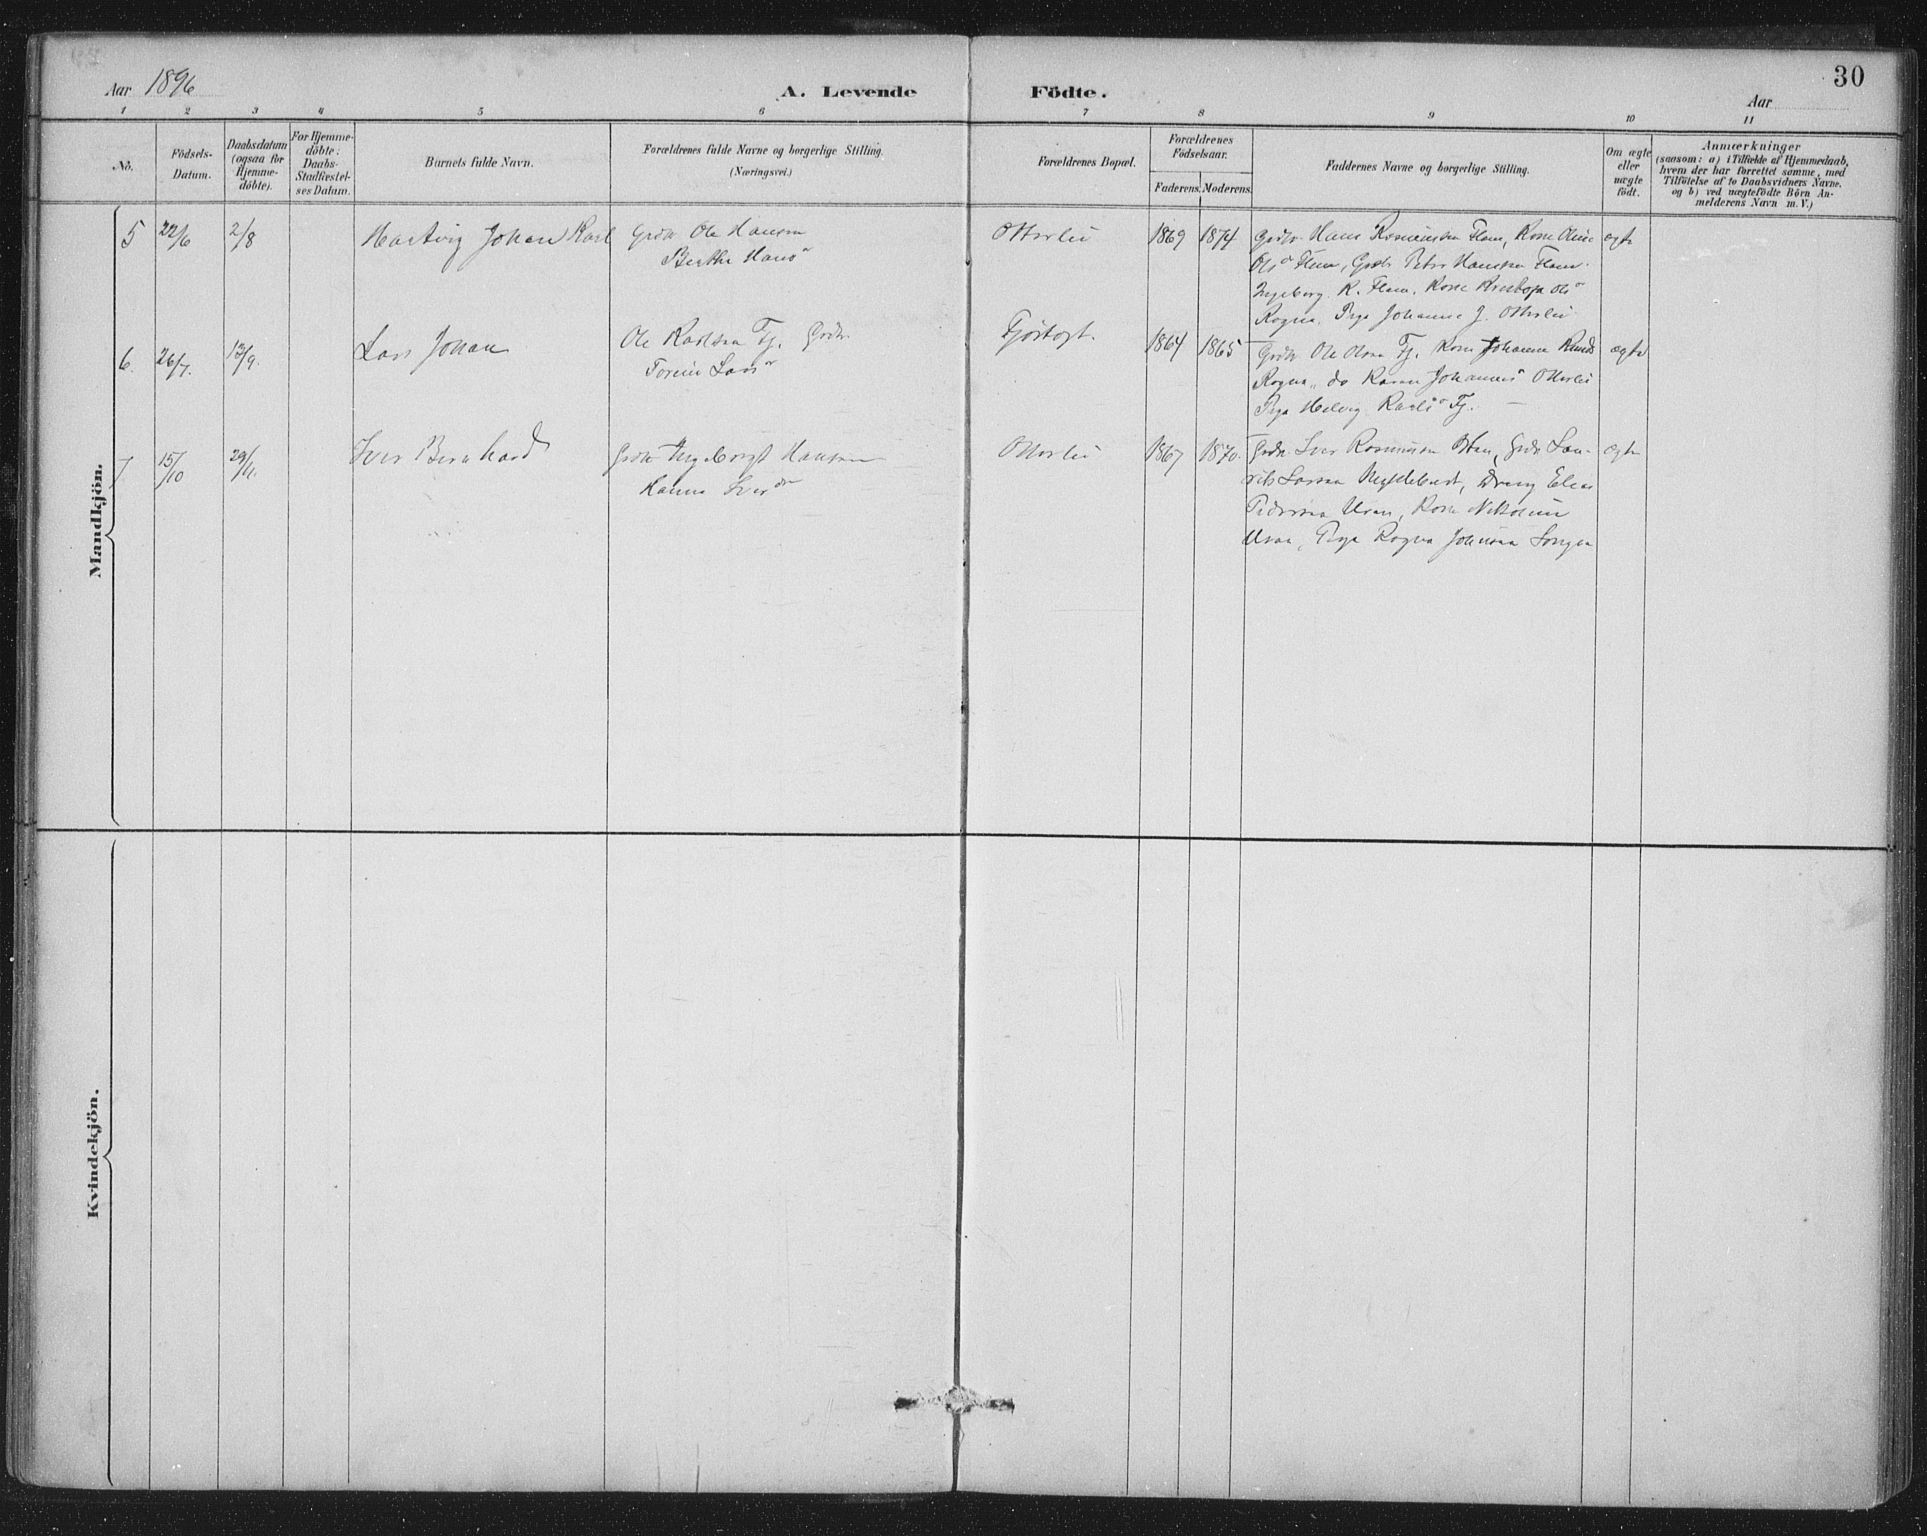 30
Aar 1896
A. Levende Födte.
Aar
1 2 3 4 5 6 7 8 9 10 11
No.
Födsels-
Datum.
Daabsdatum
(ogsaa for
Hjemme-
döbte).
For Hjemme-
döbte:
Daabs-
Stadfæstel-
ses Datum.
Barnets fulde Navn.
Forældrenes fulde Navne og borgerlige Stilling.
(Næringsvei.)
Forældrenes Bopæl.
Forældrenes
Födselsaar.
Faderens. Moderens.
Faddernes Navne og borgerlige Stilling.
Om ægte
eller
uægte
födt.
Anmærkninger
(saasom: a) i Tilfælde af Hjemmedaab,
hvem der har forrettet samme, med
Tilföielse af to Daabsvidners Navne,
og b) ved uægtefödte Börn An-
melderens Navn m. V.)
Mandkjön.
5 22/6 2/8 Hartvig Johan Karl Grdbr Ole Hansen
Berthe Hansdr
Otterlei 1869 1874 Grdbr. Hans Rasmussen Flem, Kone Oline ægte
Olsdr Flem, Grdbr Peter Hansen Flem.
Ingeborg K. Flem, Kone Olsdr
Rogne, Pige Johanne J. Otterlei
6. 26/7. 13/9. Lars Johan Ole Karlsen Fj. Grdbr.
Larsdr
Fjørtoft. 1864 1865 Grdbr Ole Olsen Fj. Kone Johanne Knuds ægte
Rogne, do Karen Johannes Otterlei
Pige Helvig Karlsdr Fj.
7 15/10 29/11. Iver Bernhard Grdbr Ingebrigt Hansen
Hanna Iversdr
Otterlei 1867 1870. Grdbr. Iver Rasmussen Grdbr Lau- ægte
rits Larsen Dreng Elias
Pedersen Uran, Kone Nikoline
Uran, Pige Ragna Johnsen Longva
Kvindekjön.